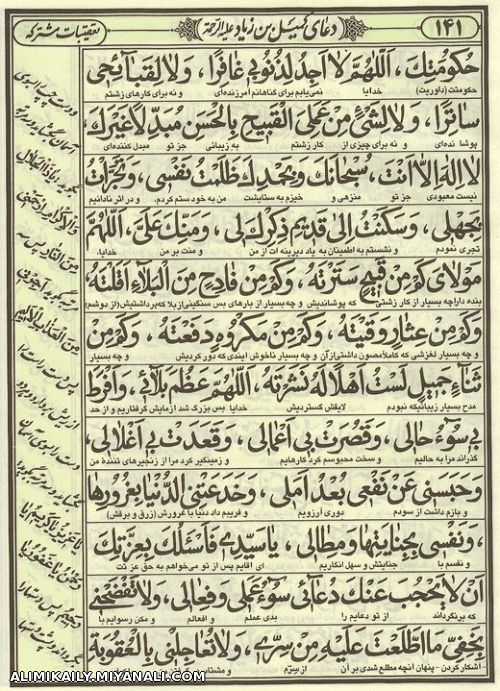 ۱۴۱
دعای کمیل بن زیاد علیه الرحمة
تعقیبات مشترکه
حُكُومَتِكَ ، اَللّهُمَّ لا اَجِدُ لِذُنُوبي غافِرًا ، وَ لا لِقَبائِحي
حکومتت (داوریت) خدایا نمی‌یابم برای گناهانم آمرزنده‌ای و نه برای کارهای زشتم
ساتِرًا ، وَ لا لِشَيْءٍ مِنْ عَمَلِيَ الْقَبيحِ بِالْحَسَنِ مُبَدِّلاً غَيْرَكَ،
پوشاننده‌ای و نه برای چیزی از کار زشتم به زیبائی جز تو مبدل کننده‌ای
لا اِلهَ اِلاّ اَنْتَ ، سُبْحانَكَ وَ بِحَمْدِكَ ظَلَمْتُ نَفْسي ، وَ تَجَرَّأْتُ
نیست معبودی جز تو منزهی و خیزم به ستایشت من به خود ستم کردم، و در اثر نادانیم
بِجَهْلي ، وَ سَكَنْتُ اِلى قَديمِ ذِكْرِكَ لي ، وَ مَنِّكَ عَلَيَّ ، اَللّهُمَّ
تجری نمودم و نشستم به اطمینان به یاد دیرینه ات از من و منت بر من خدایا،
مَوْلايَ كَمْ مِنْ قَبيحٍ سَتَرْتَهُ ، وَ كَمْ مِنْ فادِحٍ مِنَ الْبَلاءِ اَقَلْتَهُ
بنده دارا چه بسیار از کار زشتی که پوشاندیش و چه بسیار از بارهای بس سنگینی از بلا که برداشتیش (از دوشم)
وَ كَمْ مِنْ عِثارٍ وَقَيْتَهُ ، وَ كَمْ مِنْ مَكْرُوهٍ دَفَعْتَهُ ، وَ كَمْ مِنْ
و چه بسیار لغزشی که کاملاً مصون داشتی از آن و چه بسیار ناخوش آیندی که دور کردیش و چه بسیار
ثَناءٍ جَميلٍ لَسْتُ اَهْلاً لَهُ نَشَرْتَهُ ، اَللّهُمَّ عَظُمَ بَلائي ، وَ اَفْرَطَ
مدح بسیار زیبائیکه نبودم لایقش گستردیش خدایا بس بزرگ شد آزمایش گرفتاریم و از حد
بي سُوءُ حالي ، وَ قَصُرَتْ بي اَعْمالي ، وَ قَعَدَتْ بي اَغْلالي،
گذراند مرا به حالیم و سخت محبوسم کرد کارهایم و زمینگیر کرد مرا از زنجیرهای تننده من
وَ حَبَسَني عَنْ نَفْعي بُعْدُ اَمَلي ، وَ خَدَعَتْنِي الدُّنْيا بِغُرُورِها
و بازم داشت از سودم دوری آرزویم و فریبم داد دنیا با غرورش (زرق و برقش)
، وَ نَفْسي بِجِنايَتِها وَ مِطالي ، يا سَيِّدي فَاَسْئَلُكَ بِعِزَّتِكَ
و نفسم با جنایتش و سهل انکاریم ای آقایم پس از تو می‌خواهم به حق عزتت
اَنْ لا يَحْجُبَ عَنْكَ دُعائي سُوءُ عَمَلي وَ فِعالي ، وَ لا تَفْضَحْني
که برنگرداند از تو دعایم را بدی عملم و افعالم و مکن رسوایم با
بِخَفِيِّ مَا اطَّلَعْتَ عَلَيْهِ مِنْ سِرّي ، وَ لا تُعاجِلْني بِالْعُقُوبَةِ
آشکار کردن - پنهان آنچه مطلع شدی بر آن از سرّم و مشتاب بر من به عذاب
ودست چپ بسوی
بگوید یا ذا الجلال
والاکرام ارحمنی
من النار پس سه
مرتبه بگوید اجرنی
من العذاب الالیم
پس دست راست را
از ریش بردارد و هر دو
دست را بسوی آسمان
یا عزیز یا کریم یا
رحیم پس دستها را
بگرداند و پشت دستها
ALIMIKAILY.MIYANALI.COM